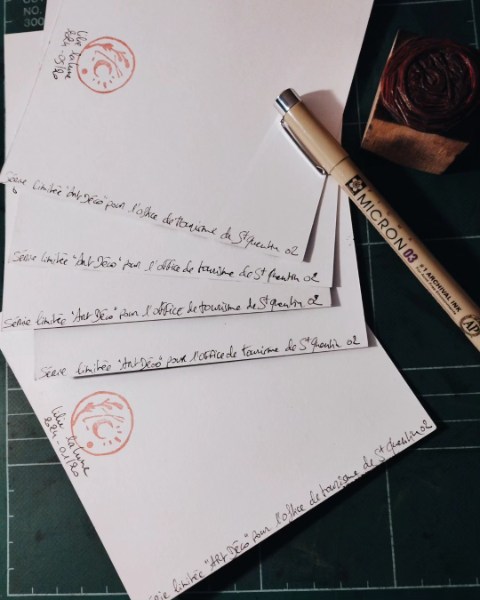 Lilie Lalune
2024-05/20
Série limitée "Art Déco" pour l'office de tourisme de St Quentin 02
Série limitée "Art Déco" pour l'office de tourisme de St Quentin 02
Série limitée "Art Déco" pour l'office de tourisme de St Quentin 02
Série limitée "Art Déco" pour l'office de tourisme de St Quentin 02
Lilie Lalune
2024-01/20
série limitée "Art Déco" pour l'office de tourisme de St Quentin 02
MICRON 03
#1 ARCHIVAL INK
AP
NO.
300